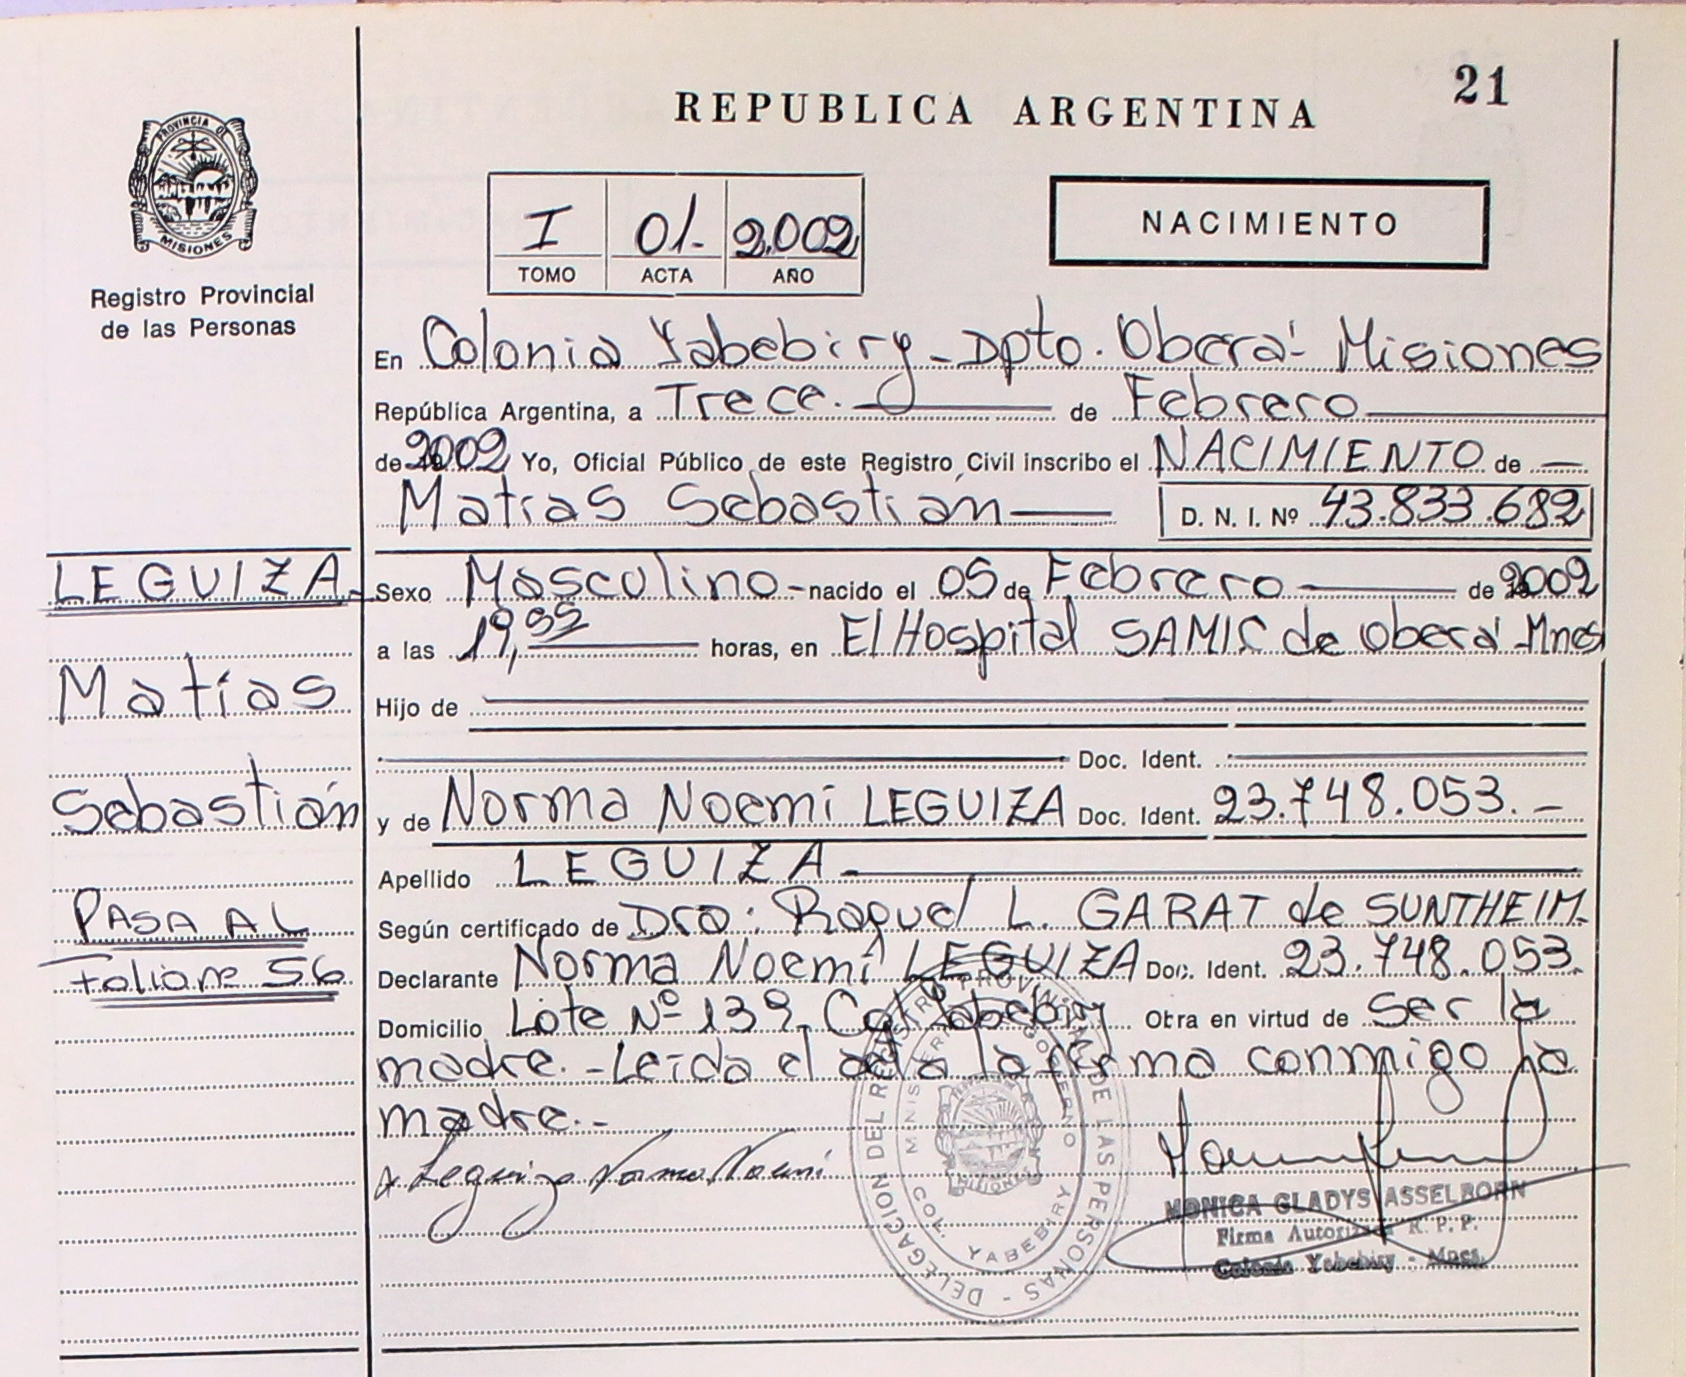 21
REPUBLICA ARGENTINA
PROVINCIA DE
MISIONES
Registro Provincial
de las Personas
I 01- 2.002
TOMO ACTA AÑO
NACIMIENTO
En Colonia Yabebiry - Dpto. Oberá - Misiones
República Argentina, a Trece. de Febrero
de 2002 Yo, Oficial Público de este Registro Civil inscribo el NACIMIENTO de
Matías Sebastián D. N. I. Nº 43.833.682
LEGUIZA
Sexo Masculino - nacido el 05 de Febrero de 2002
a las 19, horas, en El Hospital SAMIC de Oberá Mnes
Matías
Hijo de
Doc. Ident.
Sebastián
y de Norma Noemí LEGUIZA Doc. Ident. 23.748.053. -
Apellido LEGUIZA
PASA AL
Según certificado de Dra: Raquel L. GARAT de SUNTHEIM.
Foliare 56
Declarante Norma Noemí LEGUIZA Doc. Ident. 23.748.053.
Domicilio Lote Nº 139, Yabebiry Obra en virtud de ser la
madre. - Leída el acta la firma conmigo la
madre. -
Leguiza Norma Noemi
DELEGACION DEL REGISTRO PROVINCIAL DE LAS PERSONAS -
MINISTERIO GOBIERNO
COL. YABEBIRY
MISIONES
MONICA GLADYS ASSELBORN
Firma Autorizada R. P. P.
Colonia Yabebiry - Mnes.